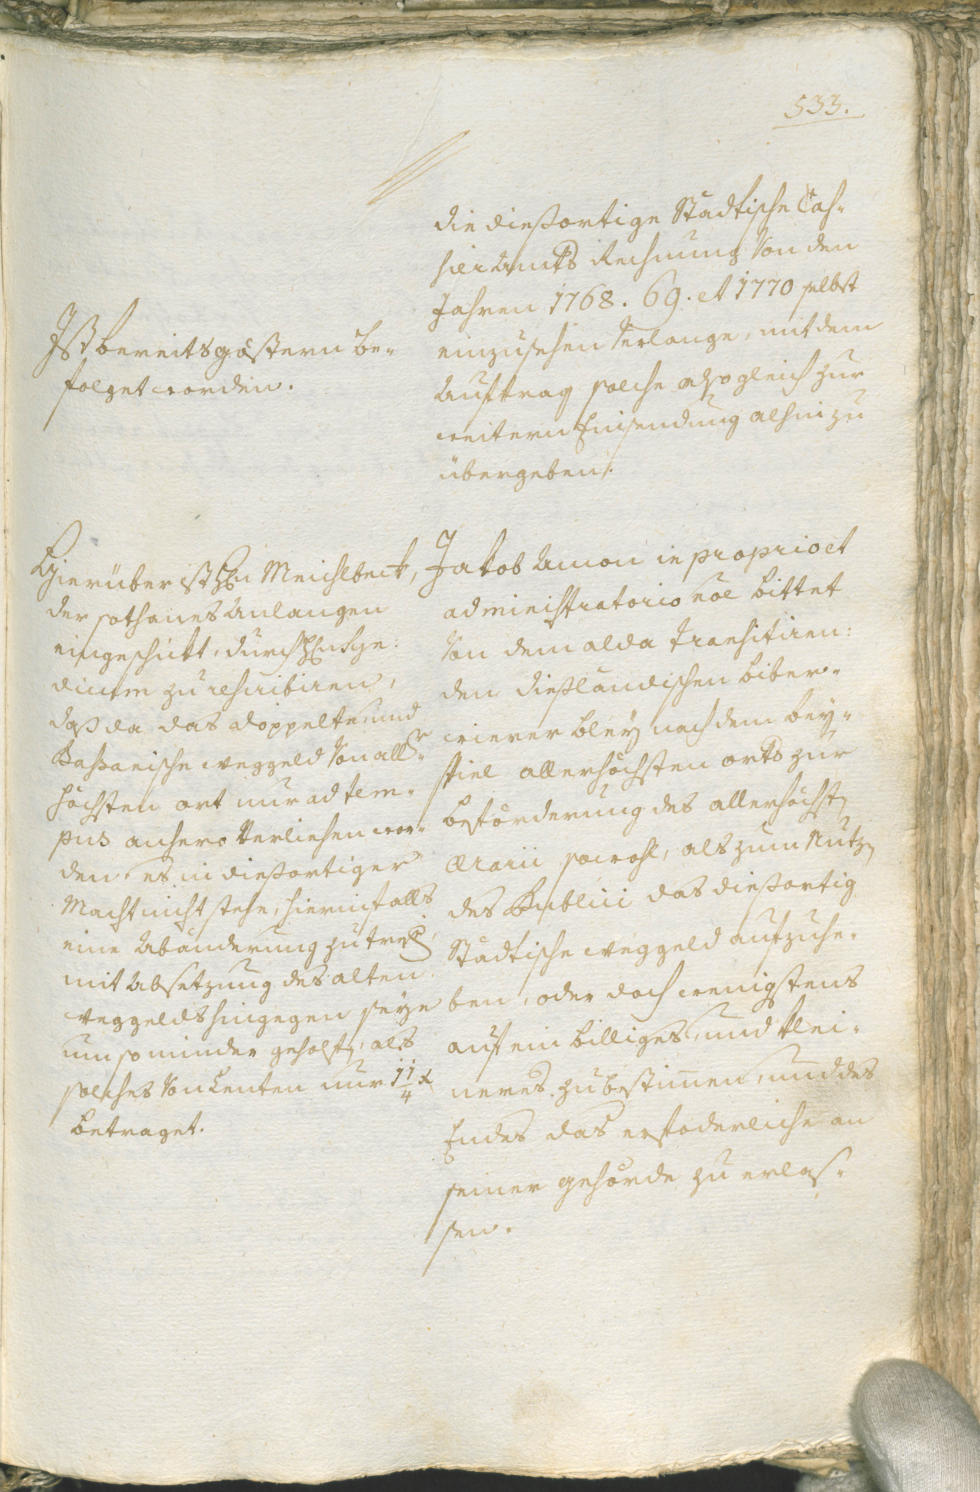 533.
die diesortige Stådtische Cas-
sier Amts Rechnung von den
Jahren 1768. 69. et 1770 selbst
einzusehen verlange, mit dem
Auftrag solche also gleich zur
weitern Einsendung alhin zu
übergeben.
Ist bereits gestern be-
folget worden.
Jakob Amon in proprio et
administratorio noē bittet
von dem alda transitiren-
den diesländischen biber-
wierer bley nach dem bey-
spiel allerhöchsten orts zur
beförderung des allerhöchst
Ærarii sowohl, als zum Nutzen
des Publici das diesortig
Stådtische weggeld aufzuhe-
ben, oder doch wenigstens
auf ein billiges, und klei-
neres zu bestimen, und des
Endes das erfoderliche an
seiner gehörde zu erlas-
sen.
Hierüber ist Hrn Meichlbeck,
der sothanes Anlangen
eingeschikt, durch
zu rescribiren,
daß da das doppelte, und
Paßanische weggeld von aller-
höchsten ort nur ad tem-
pus anhero verliehen wor-
den, es in diesortiger
Macht nicht stehe, hierinfalls
eine Abänderung zu treffen,
mit Absetzung des alten
weggelds hingegen seye
um so minder geholfen, als
solches von Centen nur 11/4 x
betraget.